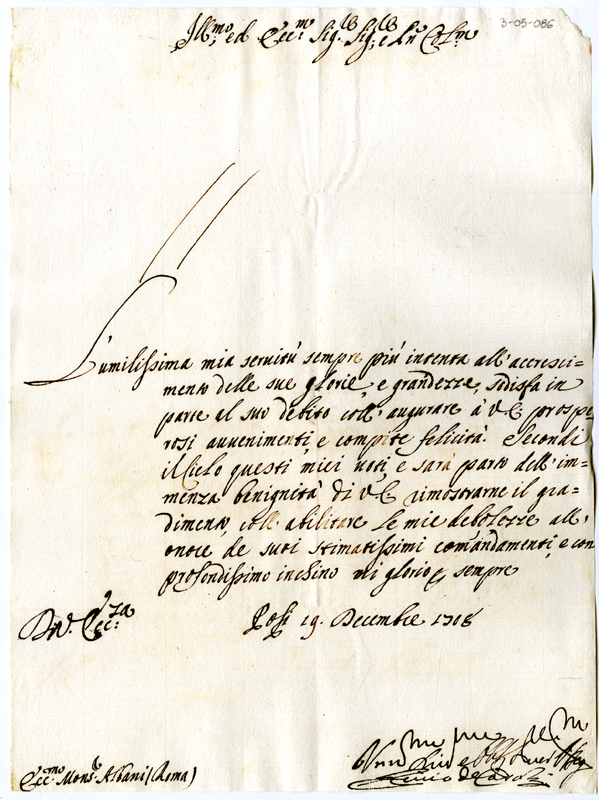 3-05-086
Ill:mo ed Ecc:mo Sig:re Sig:re e Pne Col:mo
L'umilissima mia seruitù sempre più intenta all'accresci=
mento delle sue glorie, e grandezze, sodisfa in
parte al suo debito coll'augurare à V.E. prospe
rosi auuenimenti, e compite felicità. Secondi
il Cielo questi miei uoti, e sarà parto dell'im=
menza benignità di V.E. rimostrarne il gra=
dimento, coll'abilitare le mie debolezze all'
onore de suoi stimatissimi comandamenti, e con
profondissimo inchino mi glorio sempre
D.V. Ecc:za
19. Decembre 1718
Ecc:mo Mons:r Albani (Roma)